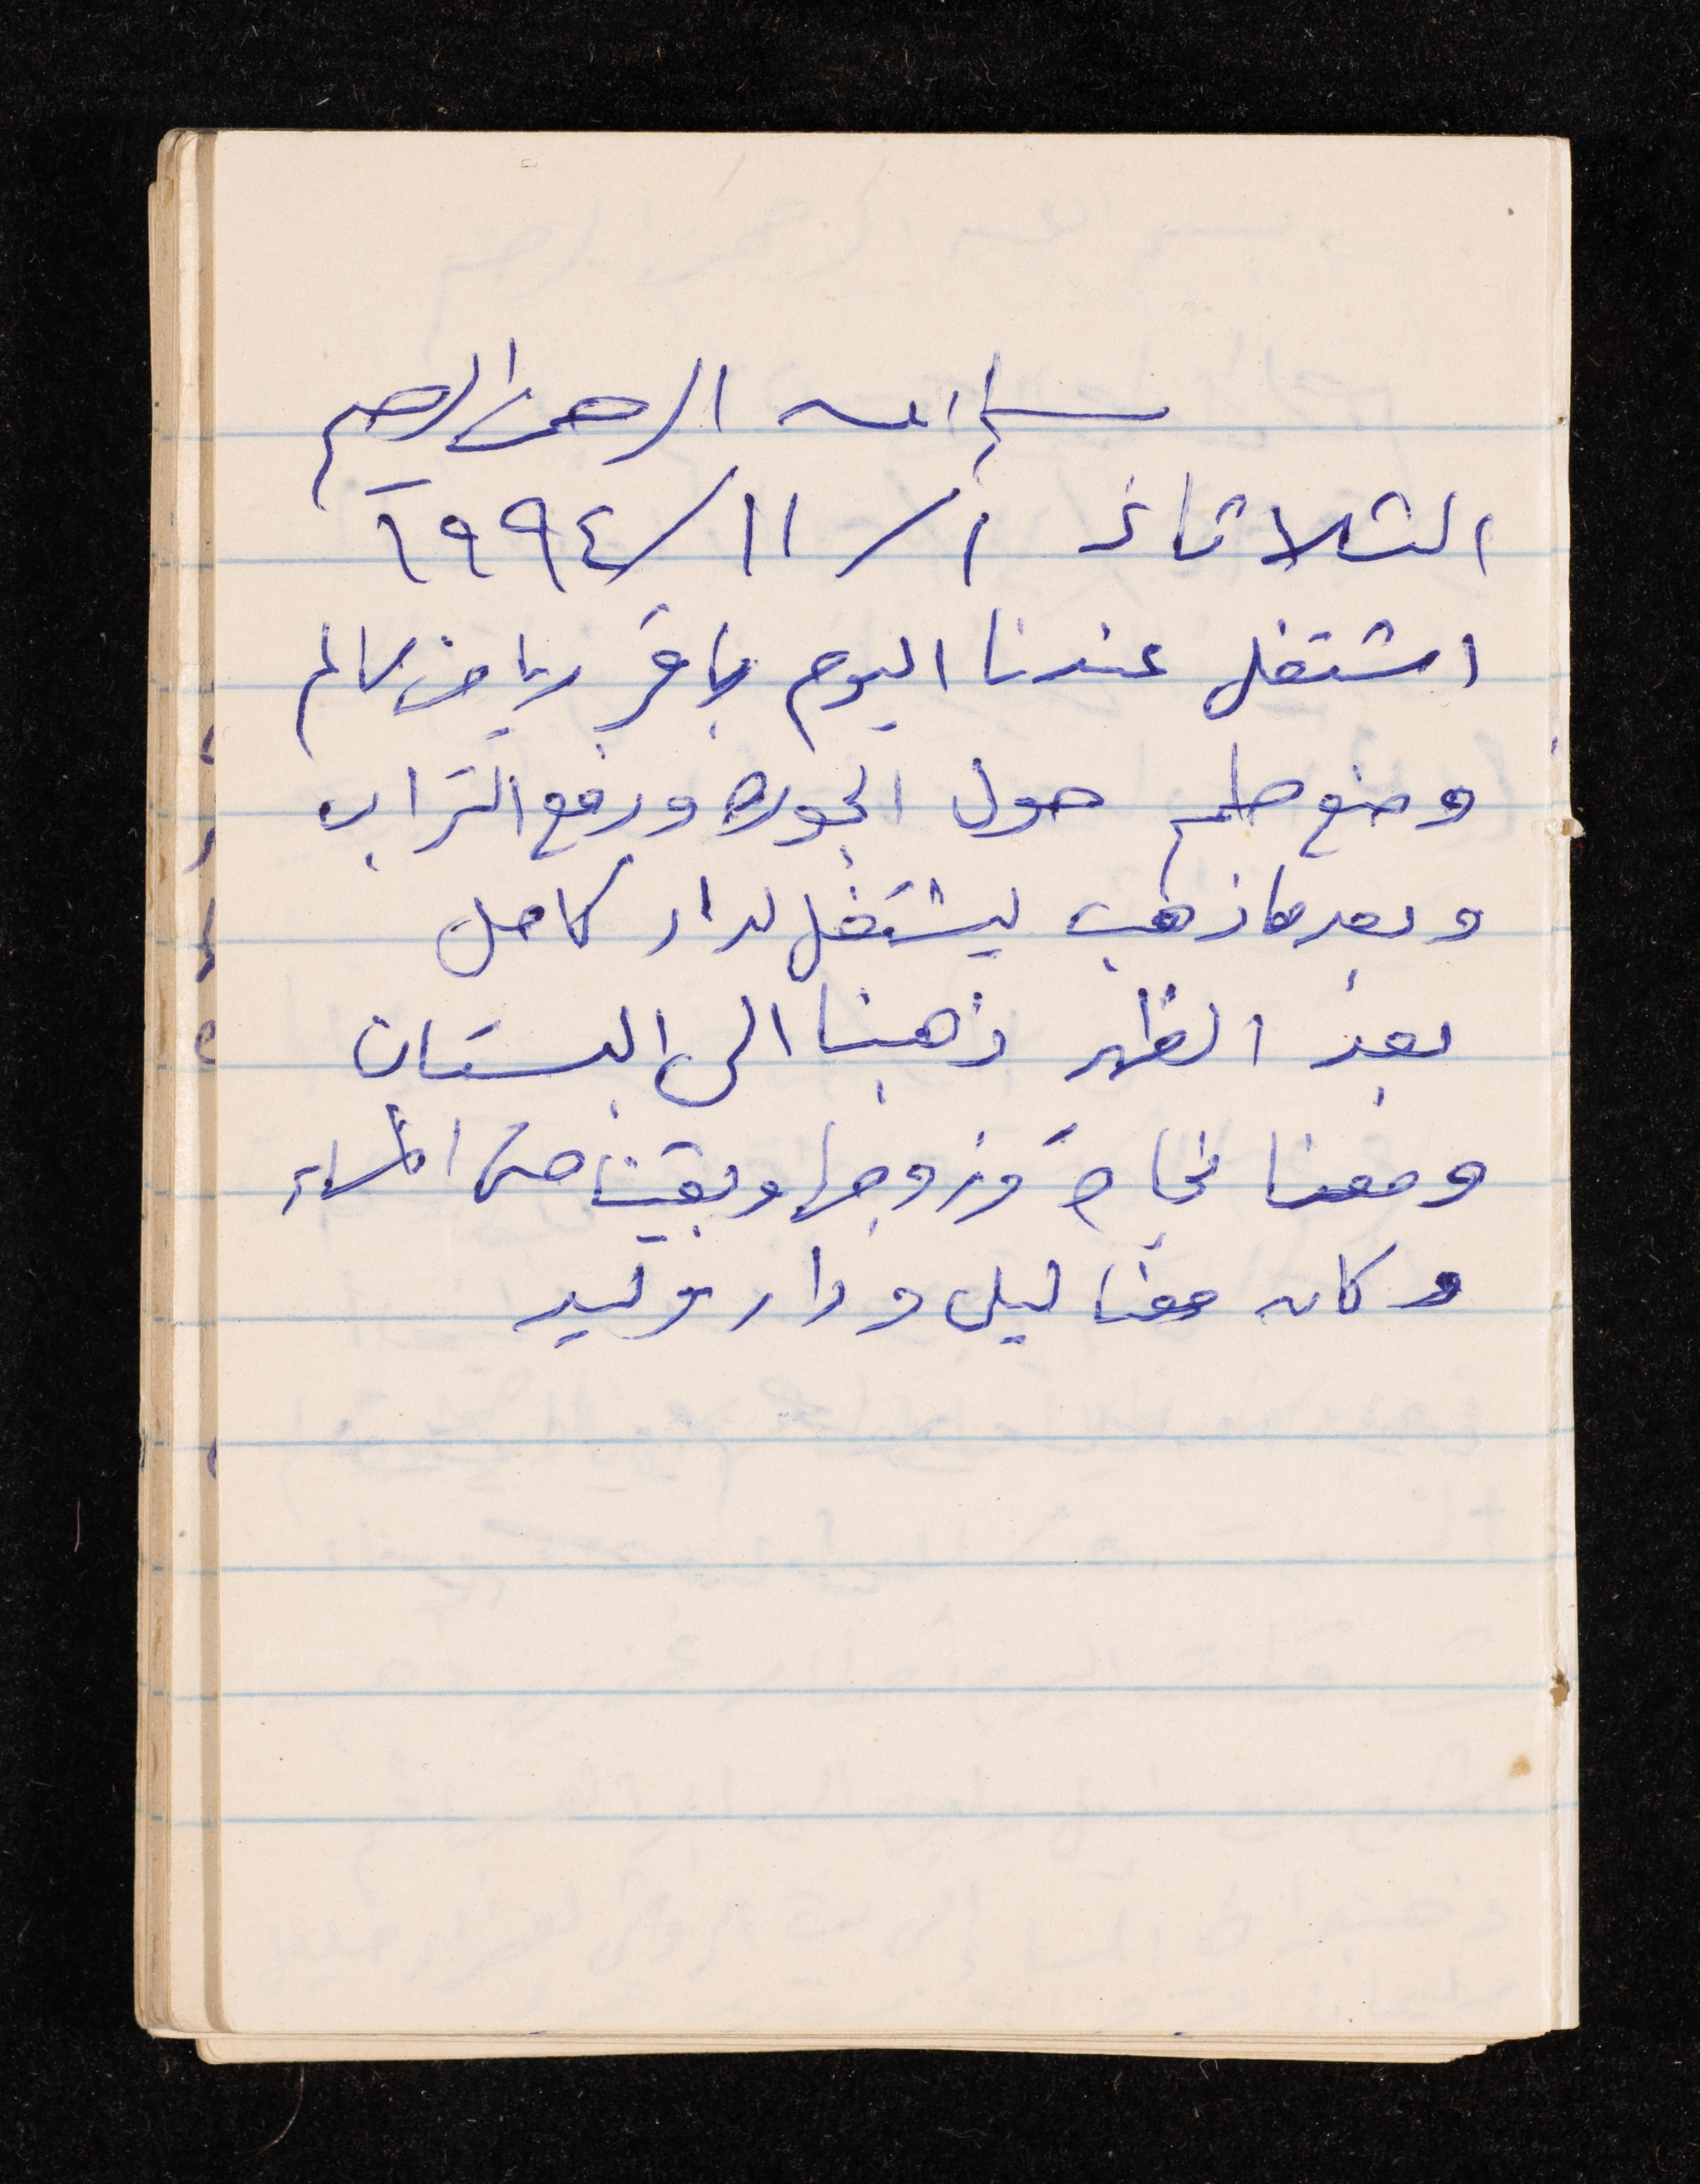 بسم الله الرحمن الرحيم
الثلاثاء ١/١١/١٩٩٤
اشتغل عندنا اليوم باقر رياض سالم
وضع طمم حول الجوره ورفع التراب
وبعدها ذهب ليشتغل لدار كامل
بعد الظهر ذهبنا الى البستان
ومعنا نجاح وزوجها وبقينا حتى المساء
وكان معنا ليلى ودار وليد